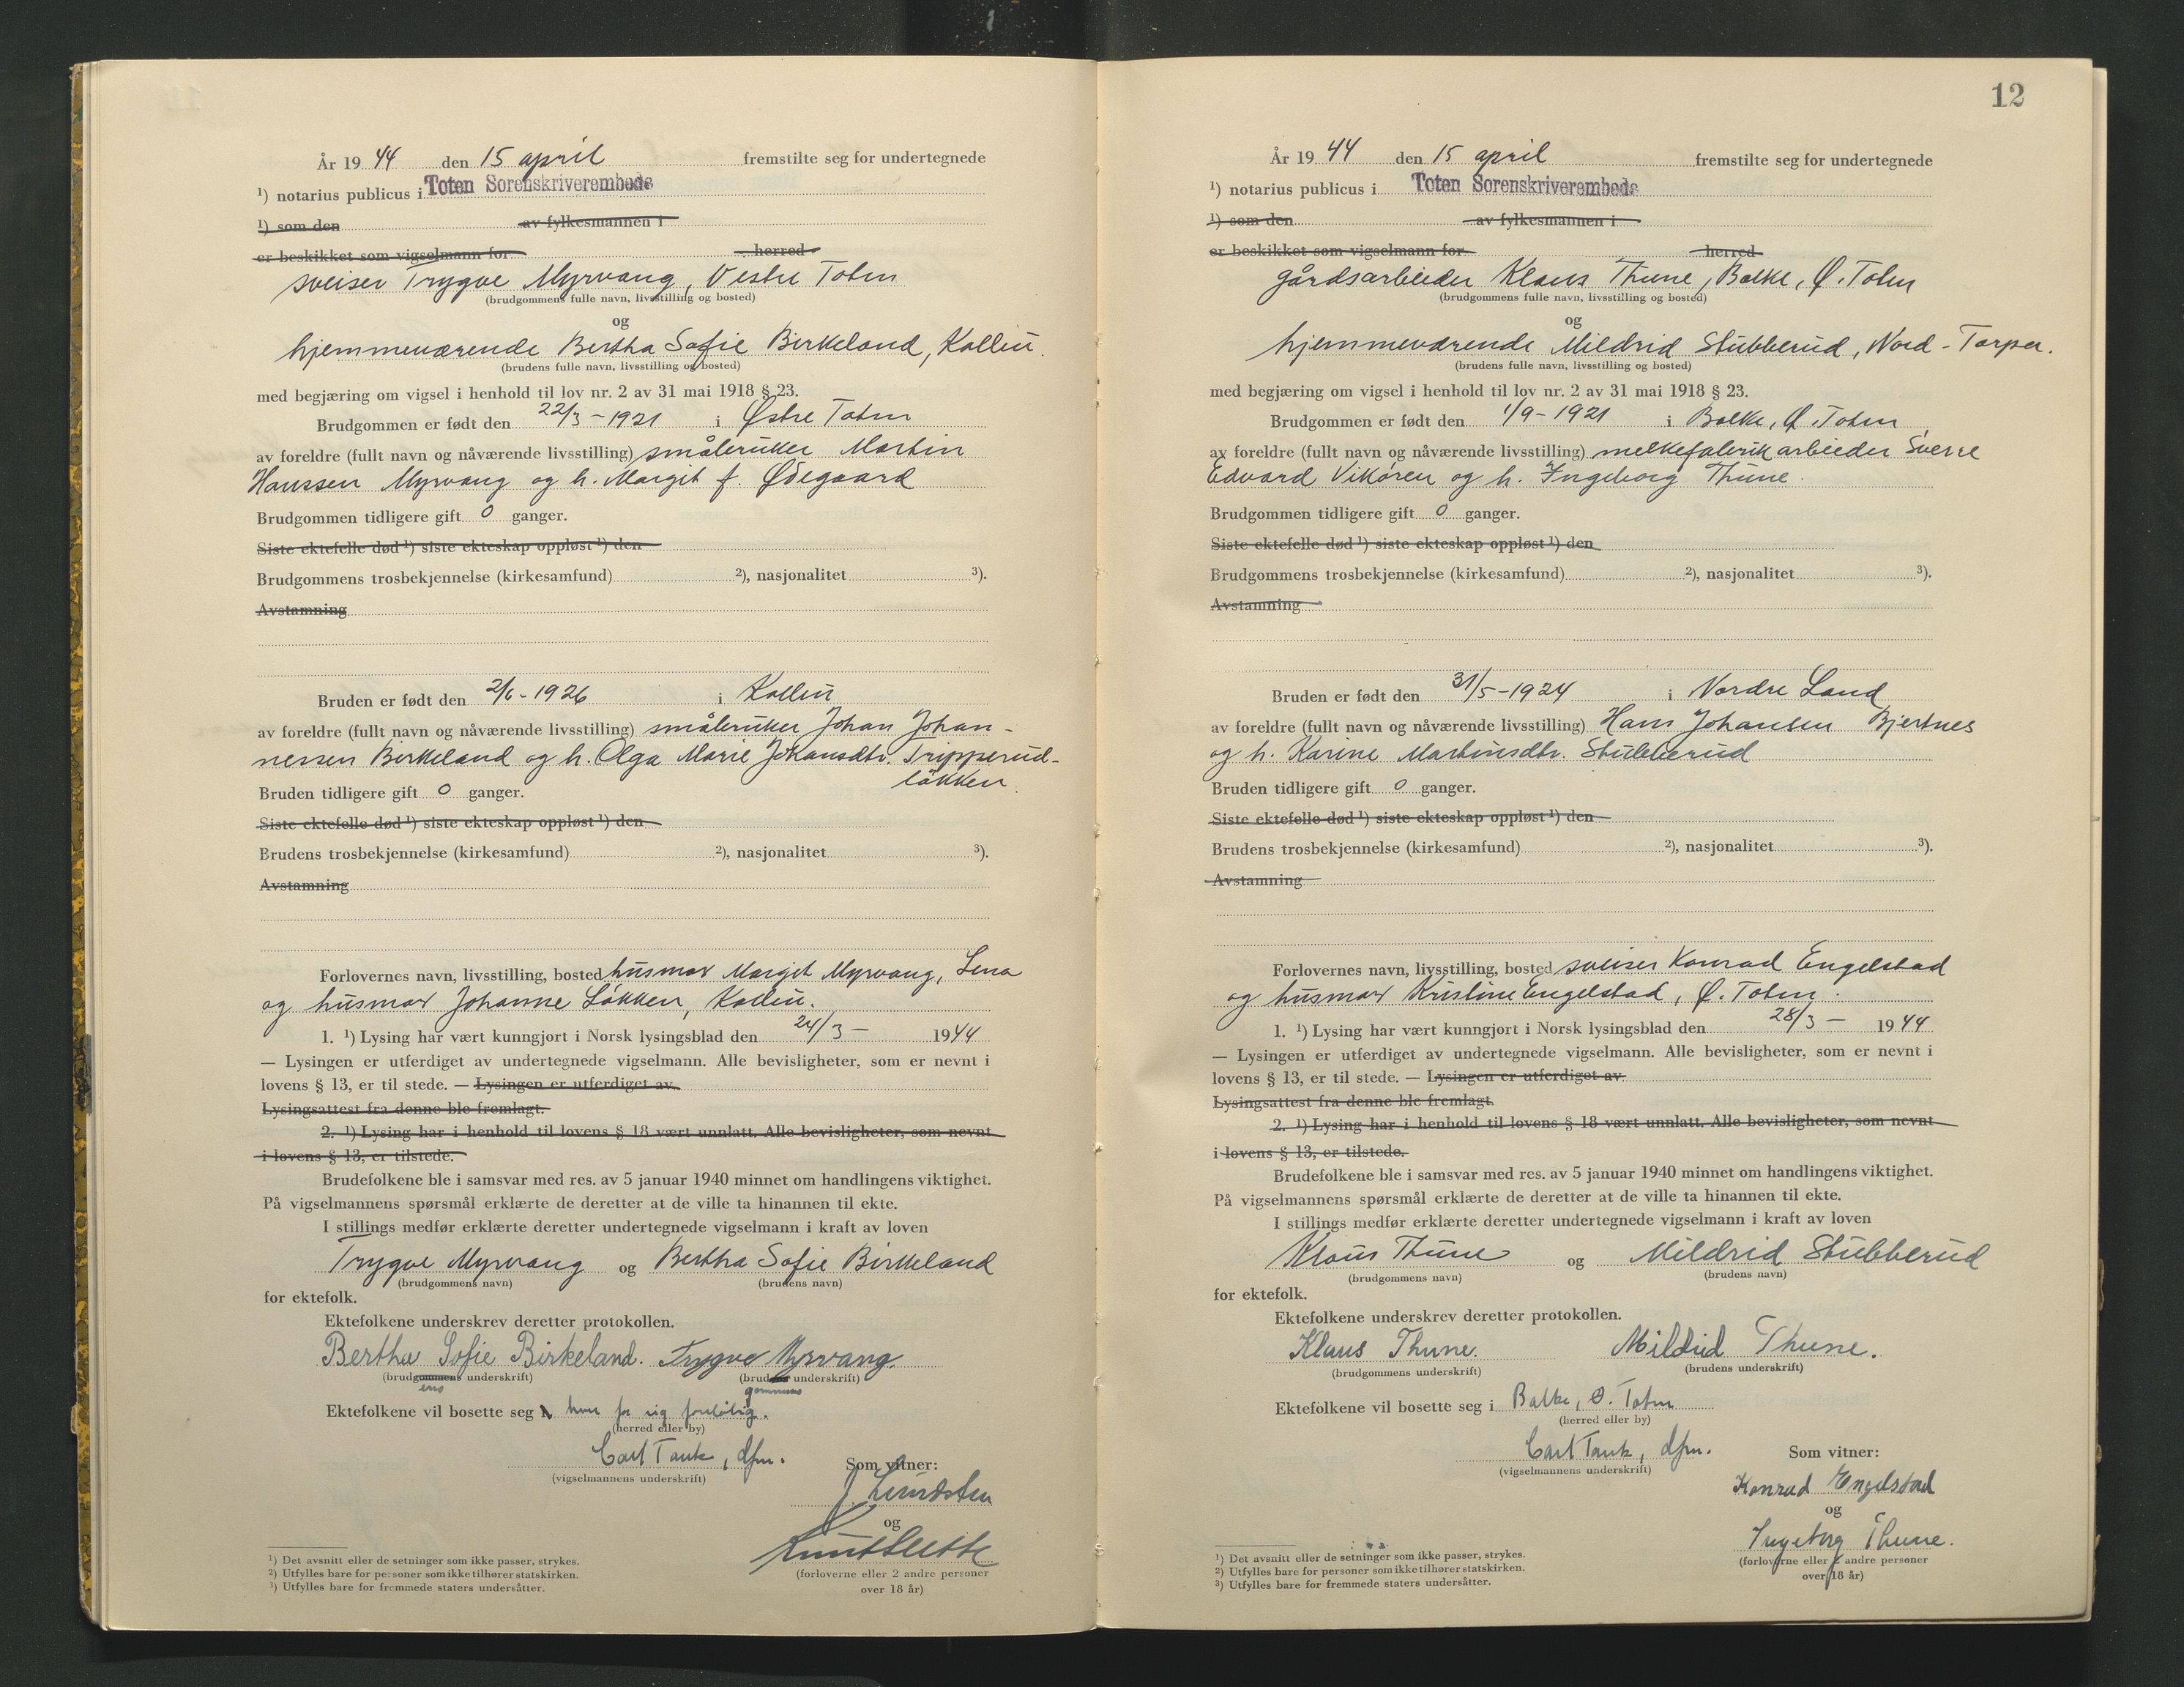 År 1944 den 15 april fremstilte seg for undertegnede
¹) notarius publicus i Toten Sorenskriverembede
¹) som den av fylkesmannen i
er beskikket som vigselmann for herred
sveiser Trygve Myrvang, Vestre Toten
(brudgommens fulle navn, livsstilling og bosted)
og
hjemmeværende Bertha Sofie Birkeland, Kolbu.
(brudens fulle navn, livsstilling og bosted)
med begjæring om vigsel i henhold til lov nr. 2 av 31 mai 1918 § 23.
Brudgommen er født den 22/3 - 1921 i Østre Toten
av foreldre (fullt navn og nåværende livsstilling) småbruker Martin
Hanssen Myrvang og h. Margit f. Ødegaard
Brudgommen tidligere gift 0 ganger.
Siste ektefelle død ¹) siste ekteskap oppløst ¹) den
Brudgommens trosbekjennelse (kirkesamfund) ²), nasjonalitet ³).
Avstamning
Bruden er født den 2/6 - 1926 i Kolbu
av foreldre (fullt navn og nåværende livsstilling) småbruker Johan Johan-
nessen Birkeland og h. Olga Marie Johansdtr. Tripperud-
løkken.
Bruden tidligere gift 0 ganger.
Siste ektefelle død ¹) siste ekteskap oppløst ¹) den
Brudens trosbekjennelse (kirkesamfund) ²), nasjonalitet ³).
Avstamning
Forlovernes navn, livsstilling, bosted husmor Margit Myrvang, Lena
og husmor Johanne Løkken, Kolbu.
1. ¹) Lysing har vært kunngjort i Norsk lysingsblad den 24/3 - 1944
— Lysingen er utferdiget av undertegnede vigselmann. Alle bevisligheter, som er nevnt i
lovens § 13, er til stede. — Lysingen er utferdiget av
Lysingsattest fra denne ble fremlagt.
2. ¹) Lysing har i henhold til lovens § 18 vært unnlatt. Alle bevisligheter, som nevnt
i lovens § 13, er tilstede.
Brudefolkene ble i samsvar med res. av 5 januar 1940 minnet om handlingens viktighet.
På vigselmannens spørsmål erklærte de deretter at de ville ta hinannen til ekte.
I stillings medfør erklærte deretter undertegnede vigselmann i kraft av loven
Trygve Myrvang og Bertha Sofie Birkeland
(brudgommens navn) (brudens navn)
for ektefolk.
Ektefolkene underskrev deretter protokollen.
Bertha Sofie Birkeland. Trygve Myrvang.
(brudgommens underskrift) (brudens underskrift)
ens gommens
Ektefolkene vil bosette seg i hver for sig foreløbig.
(herred eller by)
Carl Tank, dfm.
(vigselmannens underskrift)
Som vitner:
J. Lundsten
og
(forloverne eller 2 andre personer
over 18 år)
¹) Det avsnitt eller de setninger som ikke passer, strykes.
²) Utfylles bare for personer som ikke tilhører statskirken.
³) Utfylles bare for fremmede staters undersåtter.
12
År 1944 den 15 april fremstilte seg for undertegnede
¹) notarius publicus i Toten Sorenskriverembede
¹) som den av fylkesmannen i
er beskikket som vigselmann for herred
gårdsarbeider Klaus Thune, Balke, Ø. Toten
(brudgommens fulle navn, livsstilling og bosted)
og
hjemmeværende Mildrid Stubberud, Nord-Torpa.
(brudens fulle navn, livsstilling og bosted)
med begjæring om vigsel i henhold til lov nr. 2 av 31 mai 1918 § 23.
Brudgommen er født den 1/9 - 1921 i Balke, Ø. Toten
av foreldre (fullt navn og nåværende livsstilling) melkefabrikarbeider Sverre
Edvard Vikøren og h. Ingeborg Thune.
Brudgommen tidligere gift 0 ganger.
Siste ektefelle død ¹) siste ekteskap oppløst ¹) den
Brudgommens trosbekjennelse (kirkesamfund) ²), nasjonalitet ³).
Avstamning
Bruden er født den 31/5 - 1924 i Nordre Land
av foreldre (fullt navn og nåværende livsstilling) Hans Johansen Bjertnes
og h. Karine Martinsdtr. Stubberud
Bruden tidligere gift 0 ganger.
Siste ektefelle død ¹) siste ekteskap oppløst ¹) den
Brudens trosbekjennelse (kirkesamfund) ²), nasjonalitet ³).
Avstamning
Forlovernes navn, livsstilling, bosted sveiser Konrad Engelstad
og husmor Kristine Engelstad, Ø. Toten.
1. ¹) Lysing har vært kunngjort i Norsk lysingsblad den 28/3 - 1944
— Lysingen er utferdiget av undertegnede vigselmann. Alle bevisligheter, som er nevnt i
lovens § 13, er til stede. — Lysingen er utferdiget av
Lysingsattest fra denne ble fremlagt.
2. ¹) Lysing har i henhold til lovens § 18 vært unnlatt. Alle bevisligheter, som nevnt
i lovens § 13, er tilstede.
Brudefolkene ble i samsvar med res. av 5 januar 1940 minnet om handlingens viktighet.
På vigselmannens spørsmål erklærte de deretter at de ville ta hinannen til ekte.
I stillings medfør erklærte deretter undertegnede vigselmann i kraft av loven
Klaus Thune og Mildrid Stubberud
(brudgommens navn) (brudens navn)
for ektefolk.
Ektefolkene underskrev deretter protokollen.
Klaus Thune. Mildrid Thune.
(brudgommens underskrift) (brudens underskrift)
Ektefolkene vil bosette seg i Balke, Ø. Toten
(herred eller by)
Carl Tank, dfm.
(vigselmannens underskrift)
Som vitner:
Konrad Engelstad
og
Ingeborg Thune.
(forloverne eller 2 andre personer
over 18 år)
¹) Det avsnitt eller de setninger som ikke passer, strykes.
²) Utfylles bare for personer som ikke tilhører statskirken.
³) Utfylles bare for fremmede staters undersåtter.